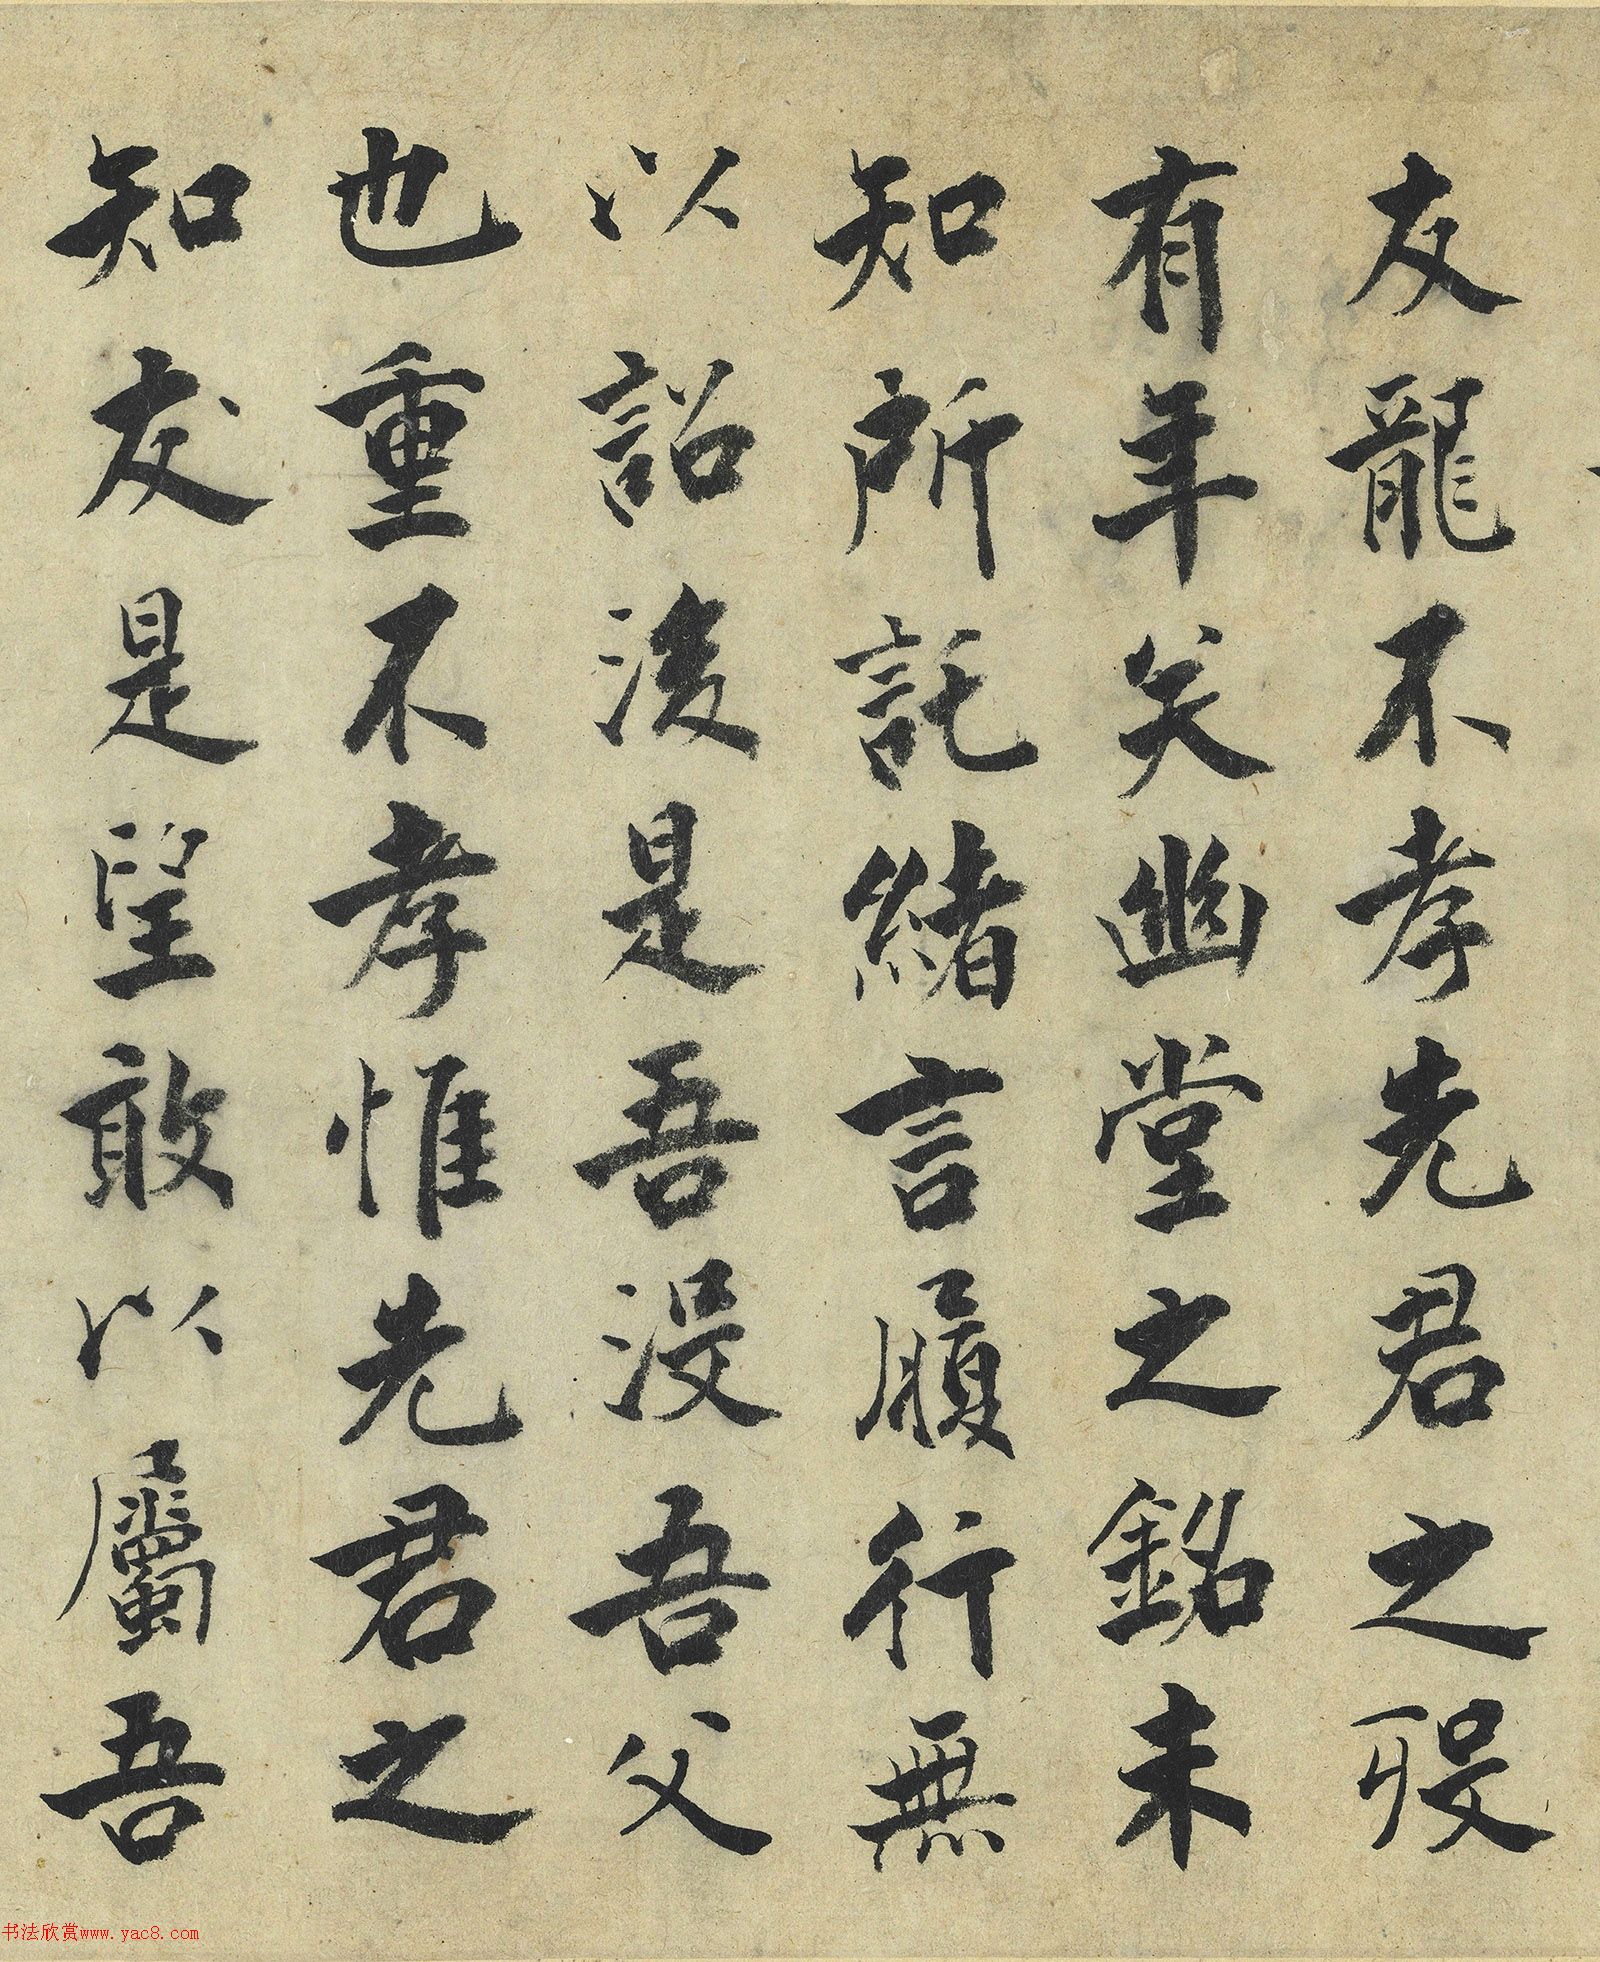 友龍不孝先君之歿
有年矣幽堂之銘未
知所託緒言履行無
以詔後是吾沒吾父
也重不孝惟先君之
知友是望敢以屬吾
书法欣赏www.yac8.com